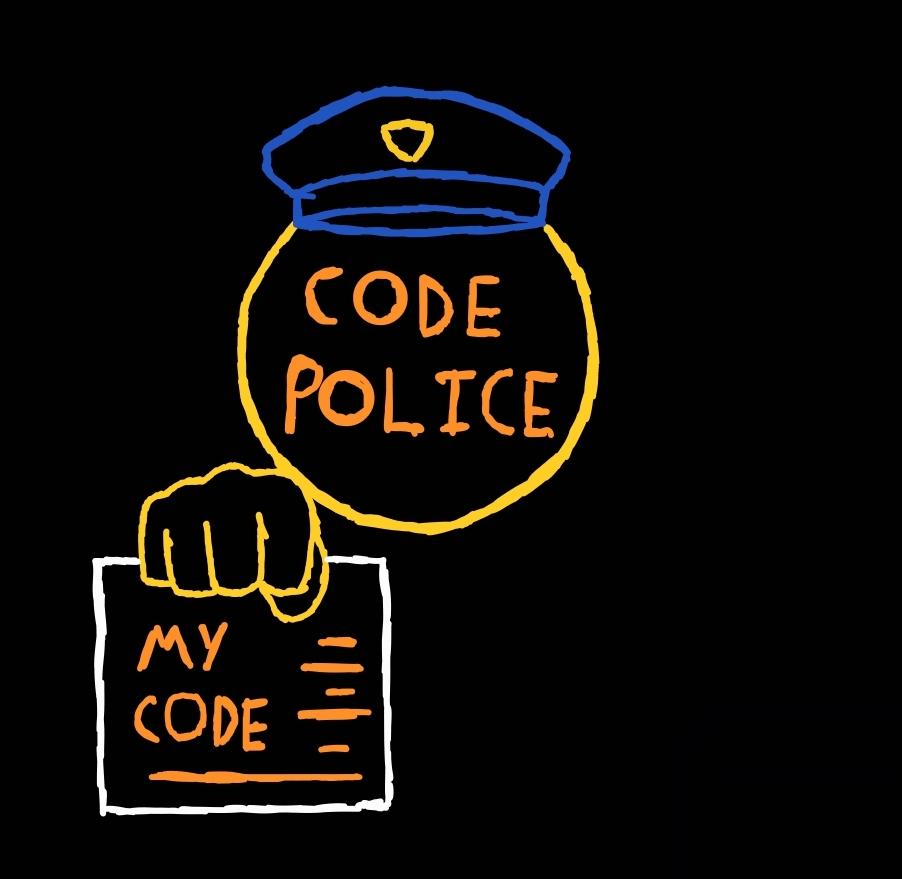 CODE
POLICE
MY
CODE